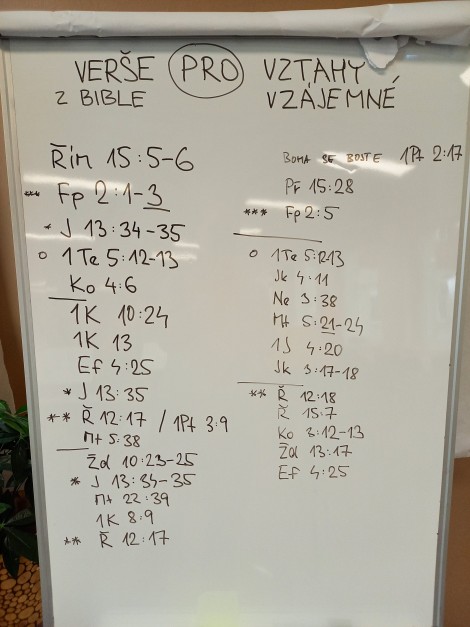 VERŠE PRO VZTAHY
Z BIBLE VZÁJEMNÉ
Řím 15:5-6
** Fp 2:1-3
* J 13:34-35
o 1Te 5:12-13
Ko 4:6
1K 10:24
1K 13
Ef 4:25
* J 13:35
** Ř 12:17 / 1Pt 3:9
Mt 5:38
Žd 10:23-25
* J 13:34-35
Mt 22:39
1K 8:9
** Ř 12:17
BOHA SE BOJTE 1Pt 2:17
Př 15:28
*** Fp 2:5
o 1Te 5:213
Jk 4:11
Ne 3:38
Mt 5:21-24
1J 4:20
Jk 3:17-18
** Ř 12:18
Ř 15:7
Ko 3:12-13
Žd 13:17
Ef 4:25